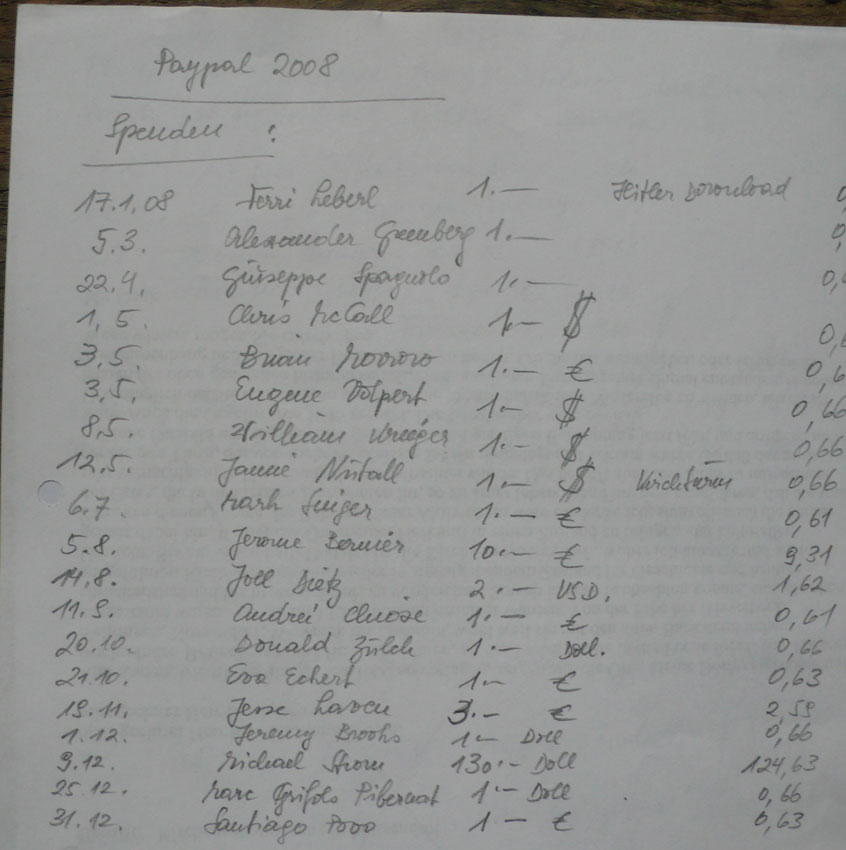 Paypal 2008
Spenden :
17.1.08 Terri Leberl 1.— Hitler Download 0,
5.3. Alexander Greenberg 1.— 0,
22.4. Giuseppe Spagnolo 1.— 0,
1.5. Chris McCall 1.— $ 0,6
3.5. Brian 1.— € 0,6
3.5. Eugene Volpert 1.— $ 0,66
8.5. William Krueger 1.— $ 0,66
12.5. Nutall 1.— $ Kirchturm 0,66
6.7. Mark Singer 1.— € 0,61
5.8. Jerome Bernier 10.— € 9,31
14.8. Joel Dietz 2.— USD. 1,62
11.9. Andrei 1.— € 0,61
20.10. Donald Zülch 1.— Doll. 0,66
21.10. Eva Eckert 1.— € 0,63
19.11. Jesse 3.— € 2,59
1.12. Jeremy Brooks 1.— Doll 0,66
9.12. Michael Strom 130.— Doll 124,63
25.12. Marc Grifols Pibernat 1.— Doll 0,66
31.12. Santiago 1.— € 0,63